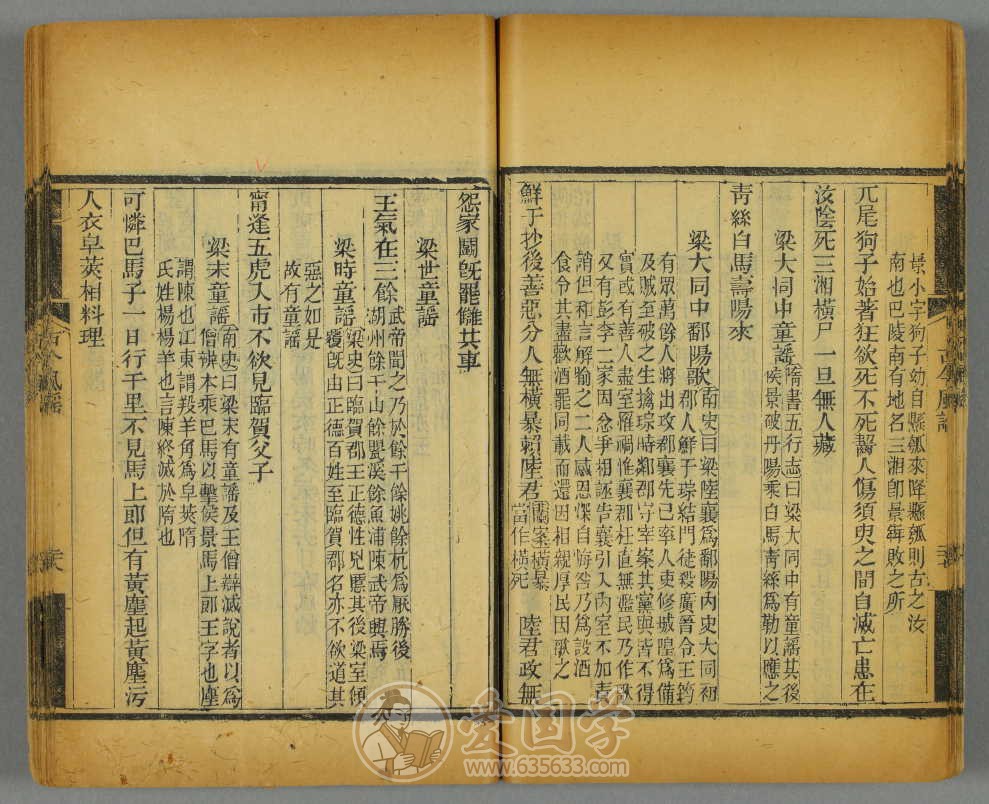 景小字狗子幼自懸瓠來降懸瓠則古之汝
南也巴陵南有地名三湘卽景奔敗之所
兀尾狗子始著狂欲死不死齧人傷須臾之間自滅亡患在
汝陰死三湘橫尸一旦無人藏
梁大同中童謠
隋書五行志曰梁大同中有童謠其後
侯景破丹陽乘白馬靑絲爲勒以應之
靑絲白馬壽陽來
梁大同中鄱陽歌
南史曰梁陸襄爲鄱陽內史大同初
郡人鮮于琮結門徒殺廣晉令王筠
有眾萬餘人將出攻郡襄先已率人吏修城隍爲備
及賊至破之生擒琮時鄰郡守宰案其黨與皆不得
實或有善人盡室罹禍惟襄郡枉直無濫民乃作歌
又有彭李二家因忿爭相誣告襄引入內室不加責
誚但和言解喻之二人感恩深自悔咎乃爲設酒
食令其盡歡酒罷同載而還因相親厚民因歌之
鮮于抄後善惡分人無橫暴賴陸君
陸君政無
當作橫死
怨家鬬旣罷讎共車
梁世童謠
王氣在三餘
武帝聞之乃於餘干餘姚餘杭爲厭勝後
湖州餘干山餘罌溪餘魚浦陳武帝興焉
梁時童謠
梁史曰臨賀郡王正德性兇慝其後梁室傾
覆旣由正德百姓至臨賀郡名亦不欲道其
惡之如是
故有童謠
甯逢五虎入市不欲見臨賀父子
梁末童謠
南史曰梁末有童謠及王僧辯滅說者以爲
僧辨本乘巴馬以擊侯景馬上郎王字也塵
謂陳也江東謂羖羊角爲皁莢隋
氏姓楊楊羊也言陳終滅於隋也
可憐巴馬子一日行千里不見馬上郎但有黃塵起黃塵污
人衣皁莢相料理
古今風謠
古今風謠
爱国学
www.635633.com